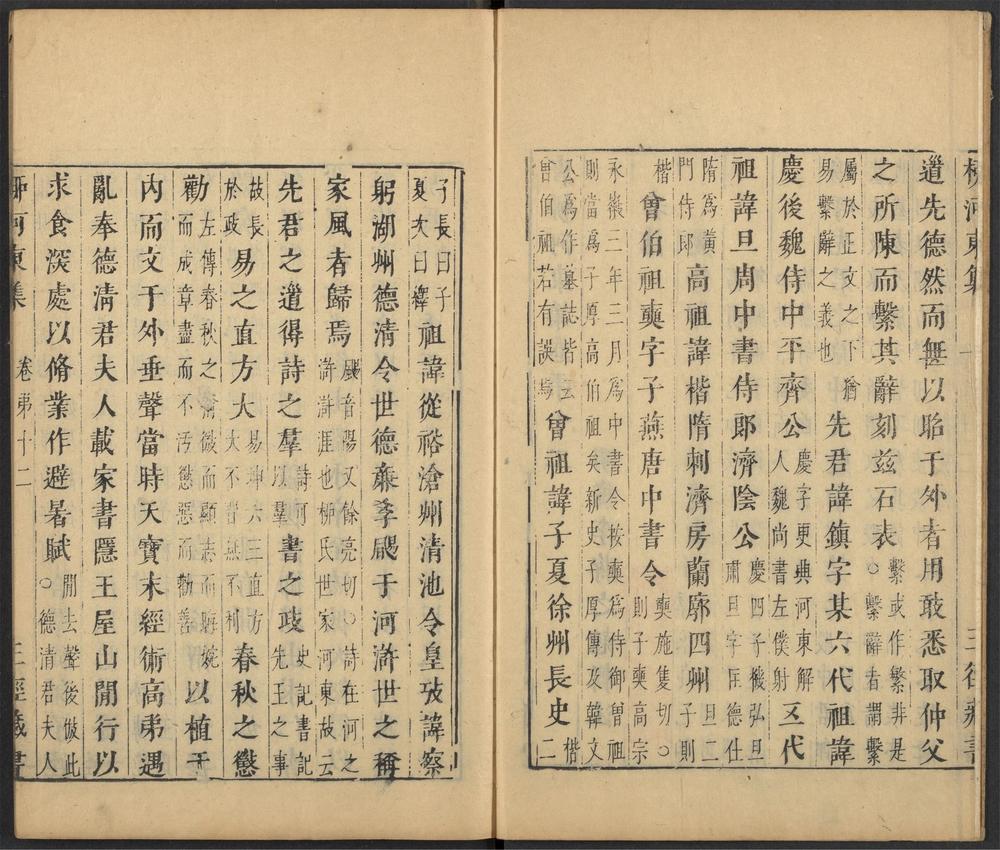 柳河東集 一 三徑藏書
道先德然而無以貽于外者用敢悉取仲父
之所陳而繫其辭刻兹石表
繫或作繁非是
○繫辭者謂繫
屬於正文之下猶
易繫辭之義也
先君諱鎮字某六代祖諱
慶後魏侍中平齊公
慶字更典河東解
人魏尚書左僕射
五代
祖諱旦周中書侍郎濟陰公
慶四子機弘旦
肅旦字匡德仕
隋爲黃
門侍郎
高祖諱楷隋刺濟房蘭廓四州
旦二
子則
楷
曾伯祖奭字子燕唐中書令
奭施隻切○
則子奭高宗
永徽三年三月爲中書令按奭爲侍御曾祖
則當爲子厚高伯祖矣新史子厚傳及韓文
公爲作墓誌皆云
曾伯祖若有誤焉
曾祖諱子夏徐州長史
楷二
子長曰子
夏次曰繹
祖諱從裕滄州清池令皇攷諱察
躬湖州德清令世德廉孝颺于河滸世之稱
家風者歸焉
颺音陽又餘亮切○詩在河之
滸滸涯也柳氏世家河東故云
先君之道得詩之羣
詩可
以羣
書之政
史記書記
先王之事
故長
於政
易之直方大
易坤六二直方
大不習無不利
春秋之懲
勸
左傳春秋之稱微而顯志而晦婉
而成章盡而不汚懲惡而勸善
以植于
內而文于外垂聲當時天寶末經術高弟遇
亂奉德清君夫人載家書隱王屋山間行以
求食深處以脩業作避暑賦
間去聲後倣此
○德清君夫人
柳河東集 卷第十二 三徑藏書